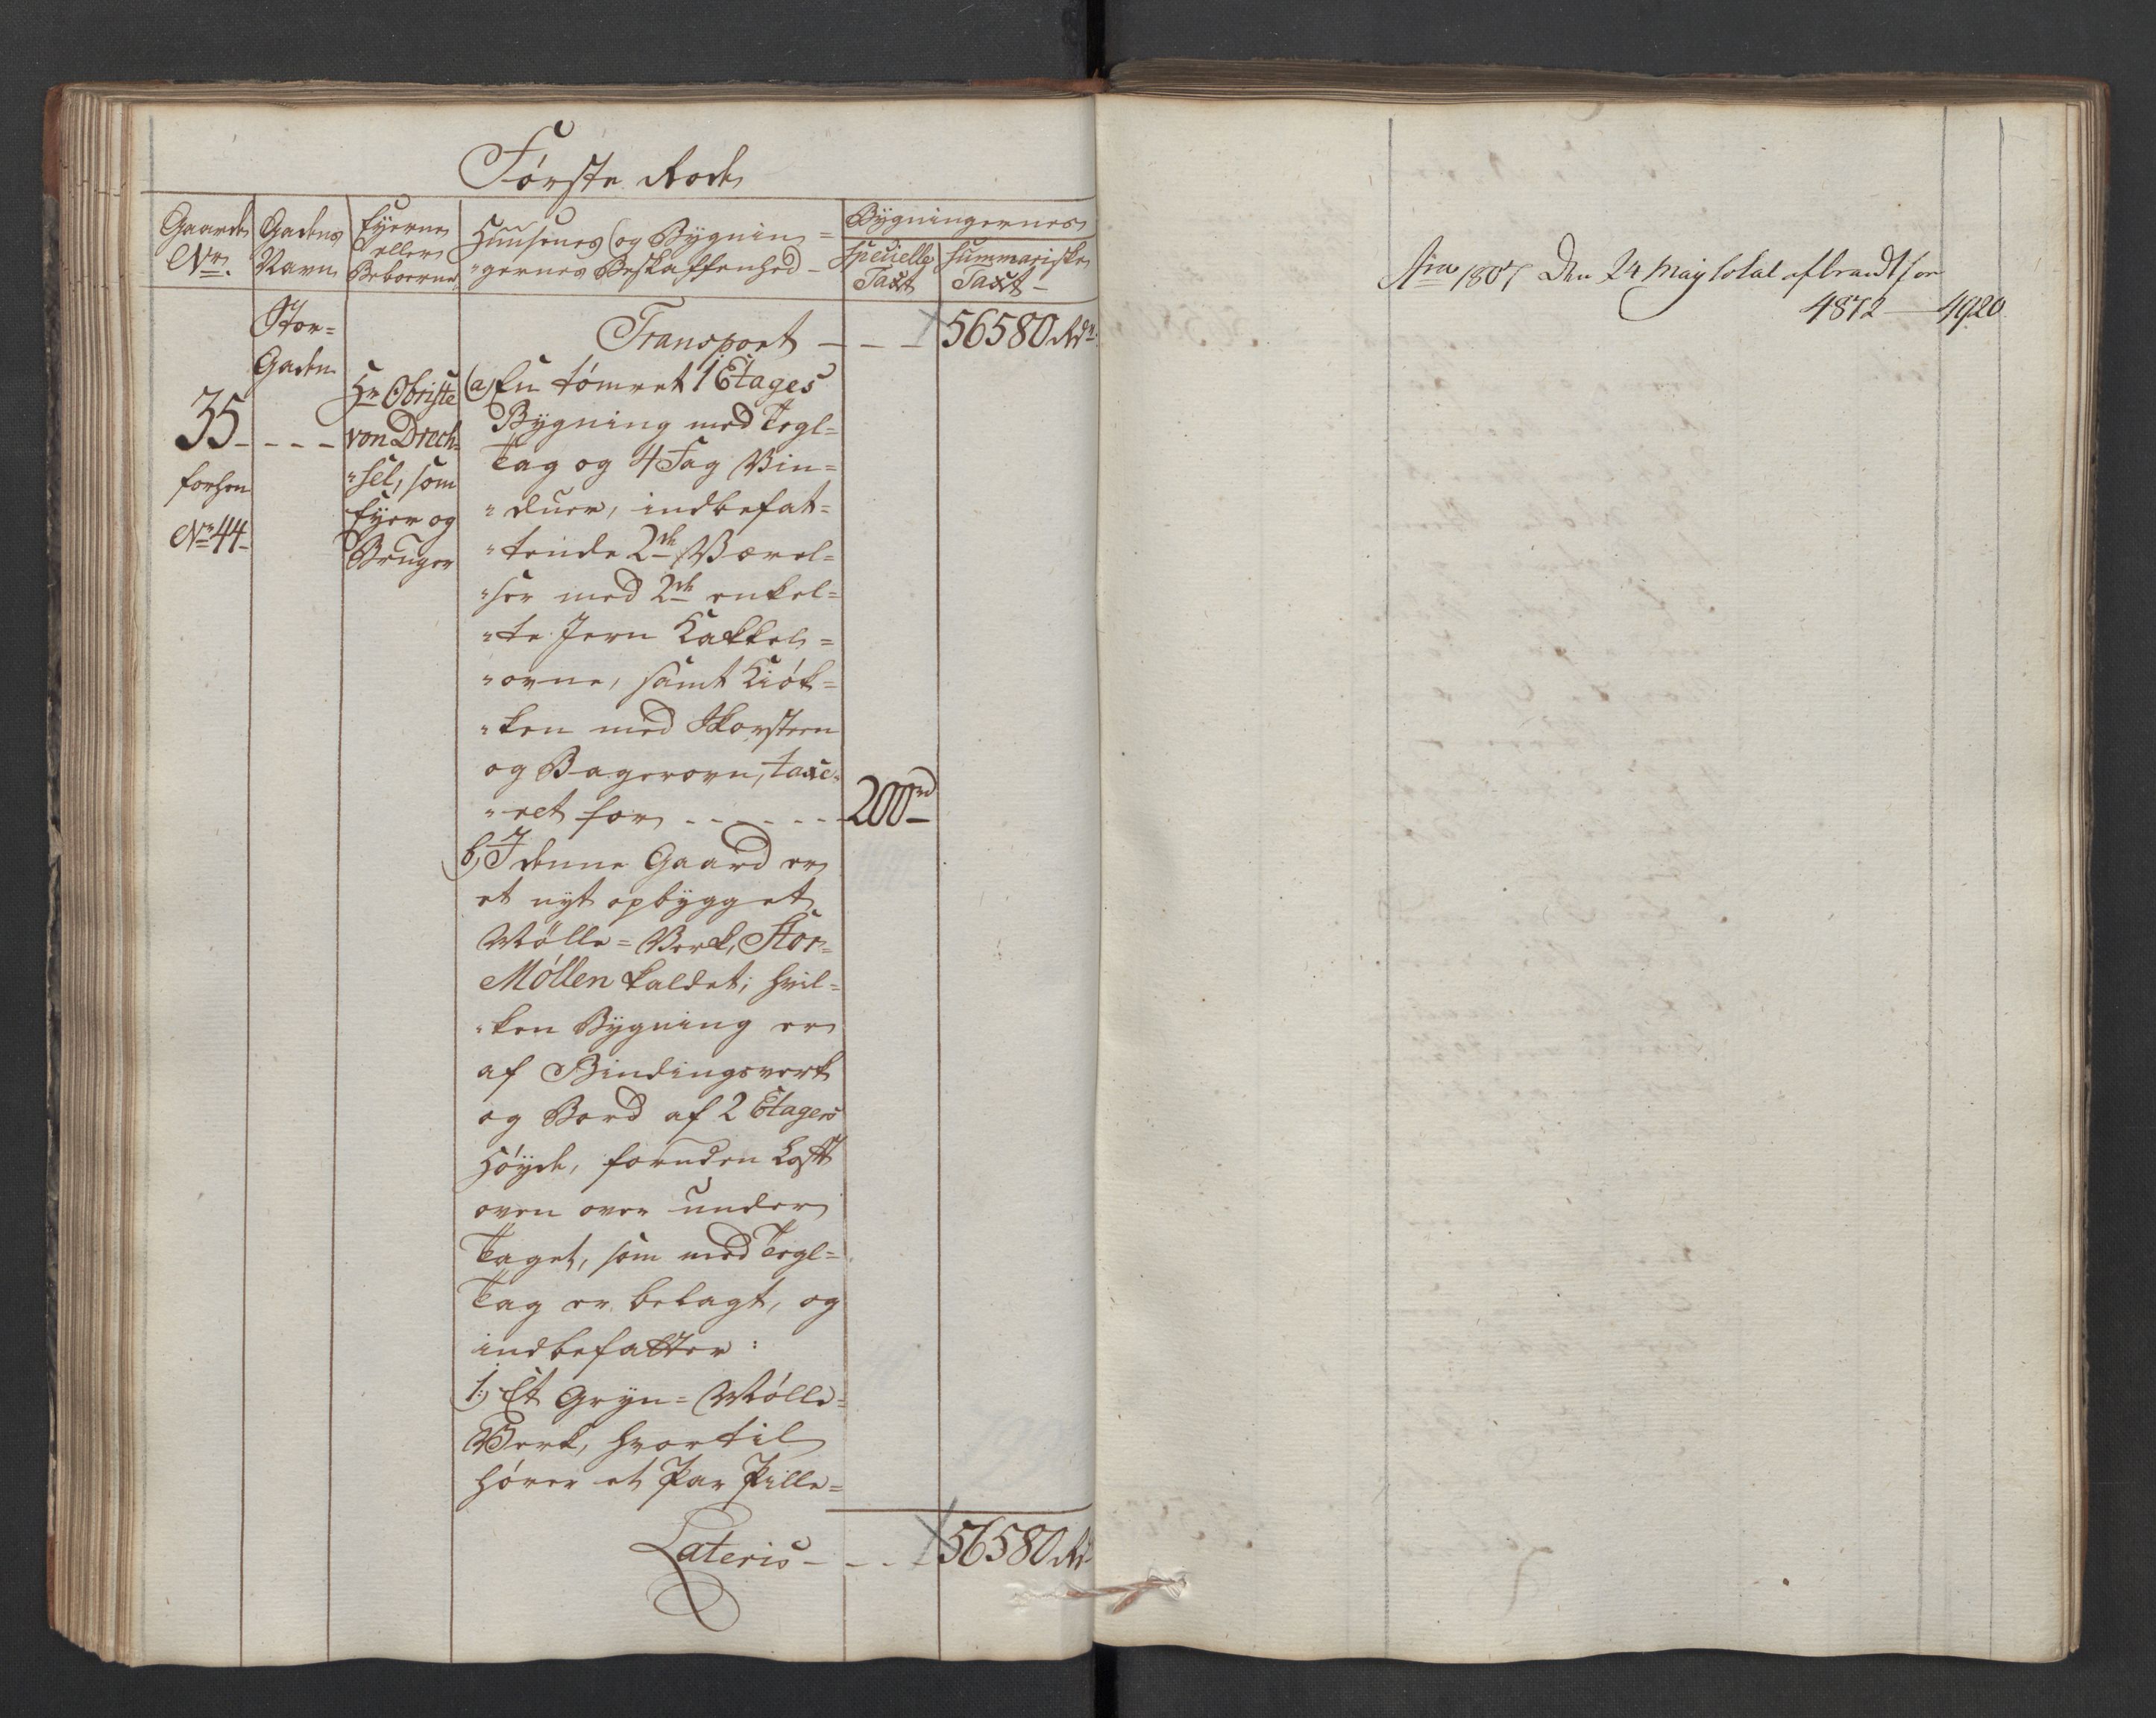 Første Rode
Gaarde Gadens Eyerne Huusenes og Bygnin= Bygningernes
Nr. Navn eller Beboerne "gernes Beskaffenhed - Specielle Taxt Summariske Taxt -
Transport - - - 56580 Rdr.
Stor=
Gaden
35 - - - -
forhen
Nr. 44 -
Hr. Obriste
von Drech=
"sel, som
Eyer og
Bruger
a, En tømret 1 Etages
Bygning med Tegl=
Tag og 4 Fag Vin=
"duer, indbefat=
"tende 2de Værel=
"ser med 2de enkel=
"te Jern Kakkel=
"ovne, samt Kiøk=
"ken med Skorsteen
og Bagerovn, taxe=
"ret for - - - - - - 200rd
b, I denne Gaard er
et nyt opbygget
Mølle=Verk, Stor=
Møllen kaldet; hvil=
"ken Bygning er
af Bindingsverk
og Bord af 2 Etagers
Høyde, foruden Loft
oven over under
Taget, som med Tegl=
Tag er belagt, og
indbefatter:
1.) Et Gryn=Mølle=
Verk, hvortil
hører et Par Pille=
Lateris - - - 56580 Rd
Ao 1807 Den 24 May total afbrandt for
4872 — 4920